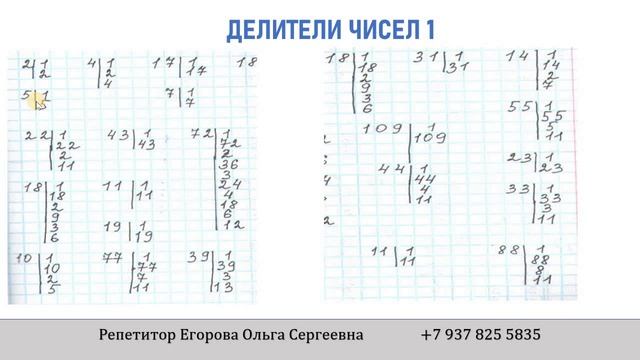 ДЕЛИТЕЛИ ЧИСЕЛ 1
2 | 1
2
4 | 1
2
4
17 | 1
17
18
5 | 1
7 | 1
7
22 | 1
22
2
11
43 | 1
43
72 | 1
72
2
36
3
24
4
18
6
12
18 | 1
18
2
9
3
6
11 | 1
11
19 | 1
19
10 | 1
10
2
5
77 | 1
77
7
11
39 | 1
39
3
13
18 | 1
18
2
9
3
6
31 | 1
31
14 | 1
14
2
7
109 | 1
109
55 | 1
55
5
11
44 | 1
44
4
11
23 | 1
23
33 | 1
33
3
11
11 | 1
11
88 | 1
88
8
11
Репетитор Егорова Ольга Сергеевна +7 937 825 5835